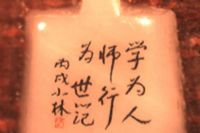 学为人
师行
为世范
丙戌小林